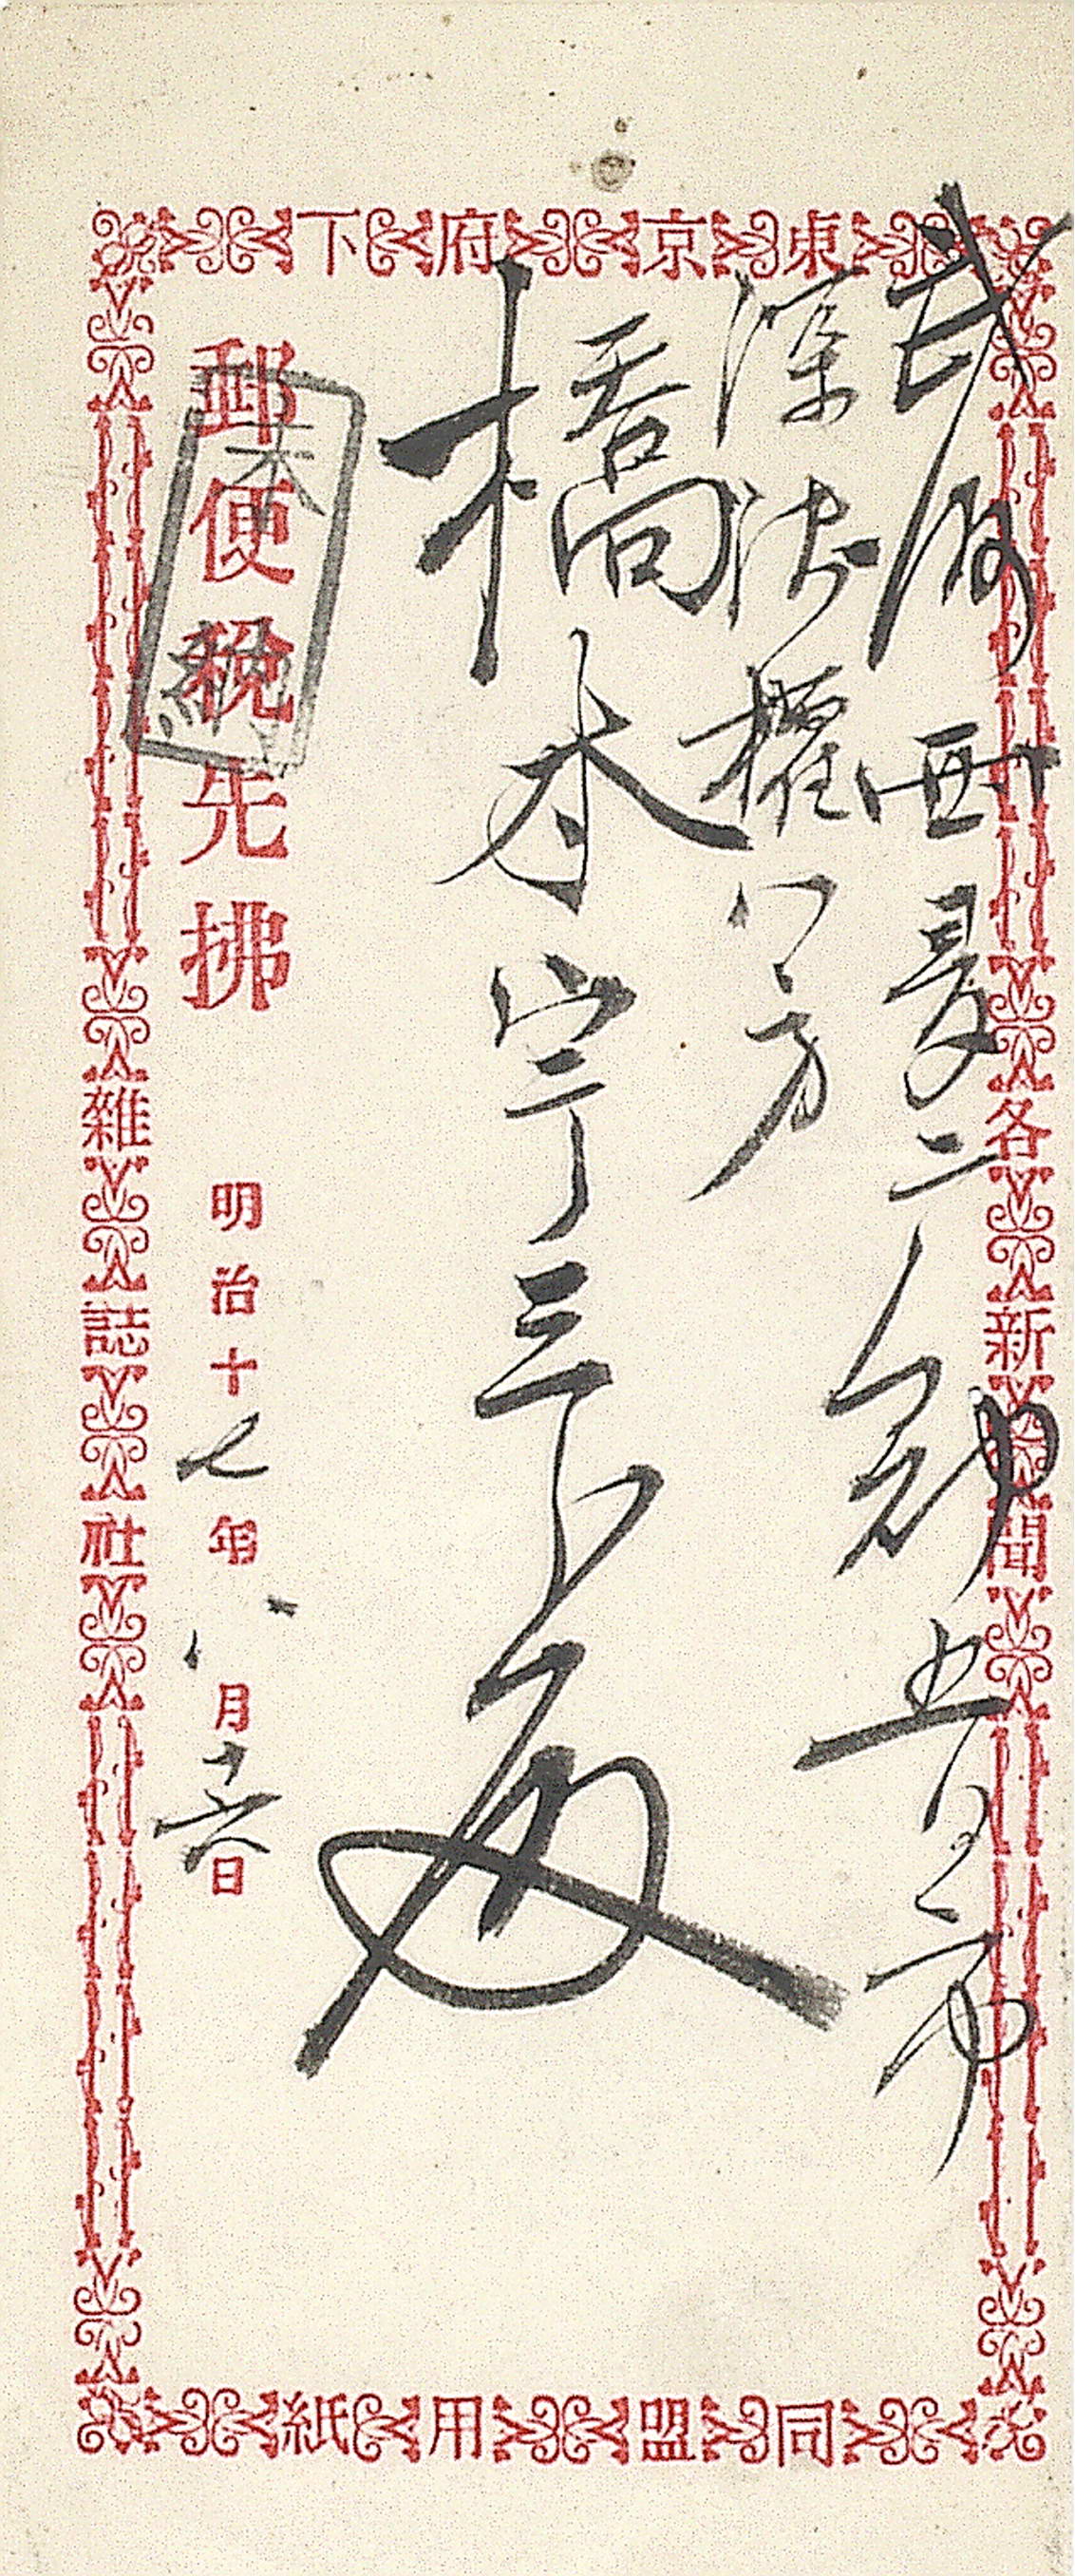 東京府下
各新聞
武州西多摩郡五日市
深沢権八方
橋本宇三郎殿
郵便税先拂
未納
明治十七年八月十六日
雜誌社
同盟用紙